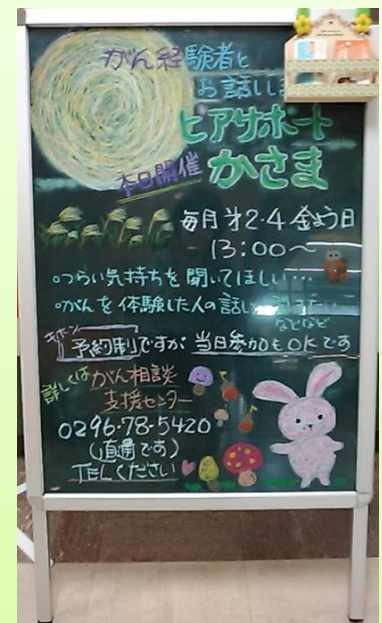 がん経験者と
お話しま
ピアサポート
かさま
本日開催
毎月才2・4金よう日
13:00〜
○つらい気持ちを聞いてほしい…
○がんを体験した人の話し
などなど
キホン
予約制ですが 当日参加もOKです
詳しくは
がん相談
支援センター
0296-78-5420
(直通です)
TELください